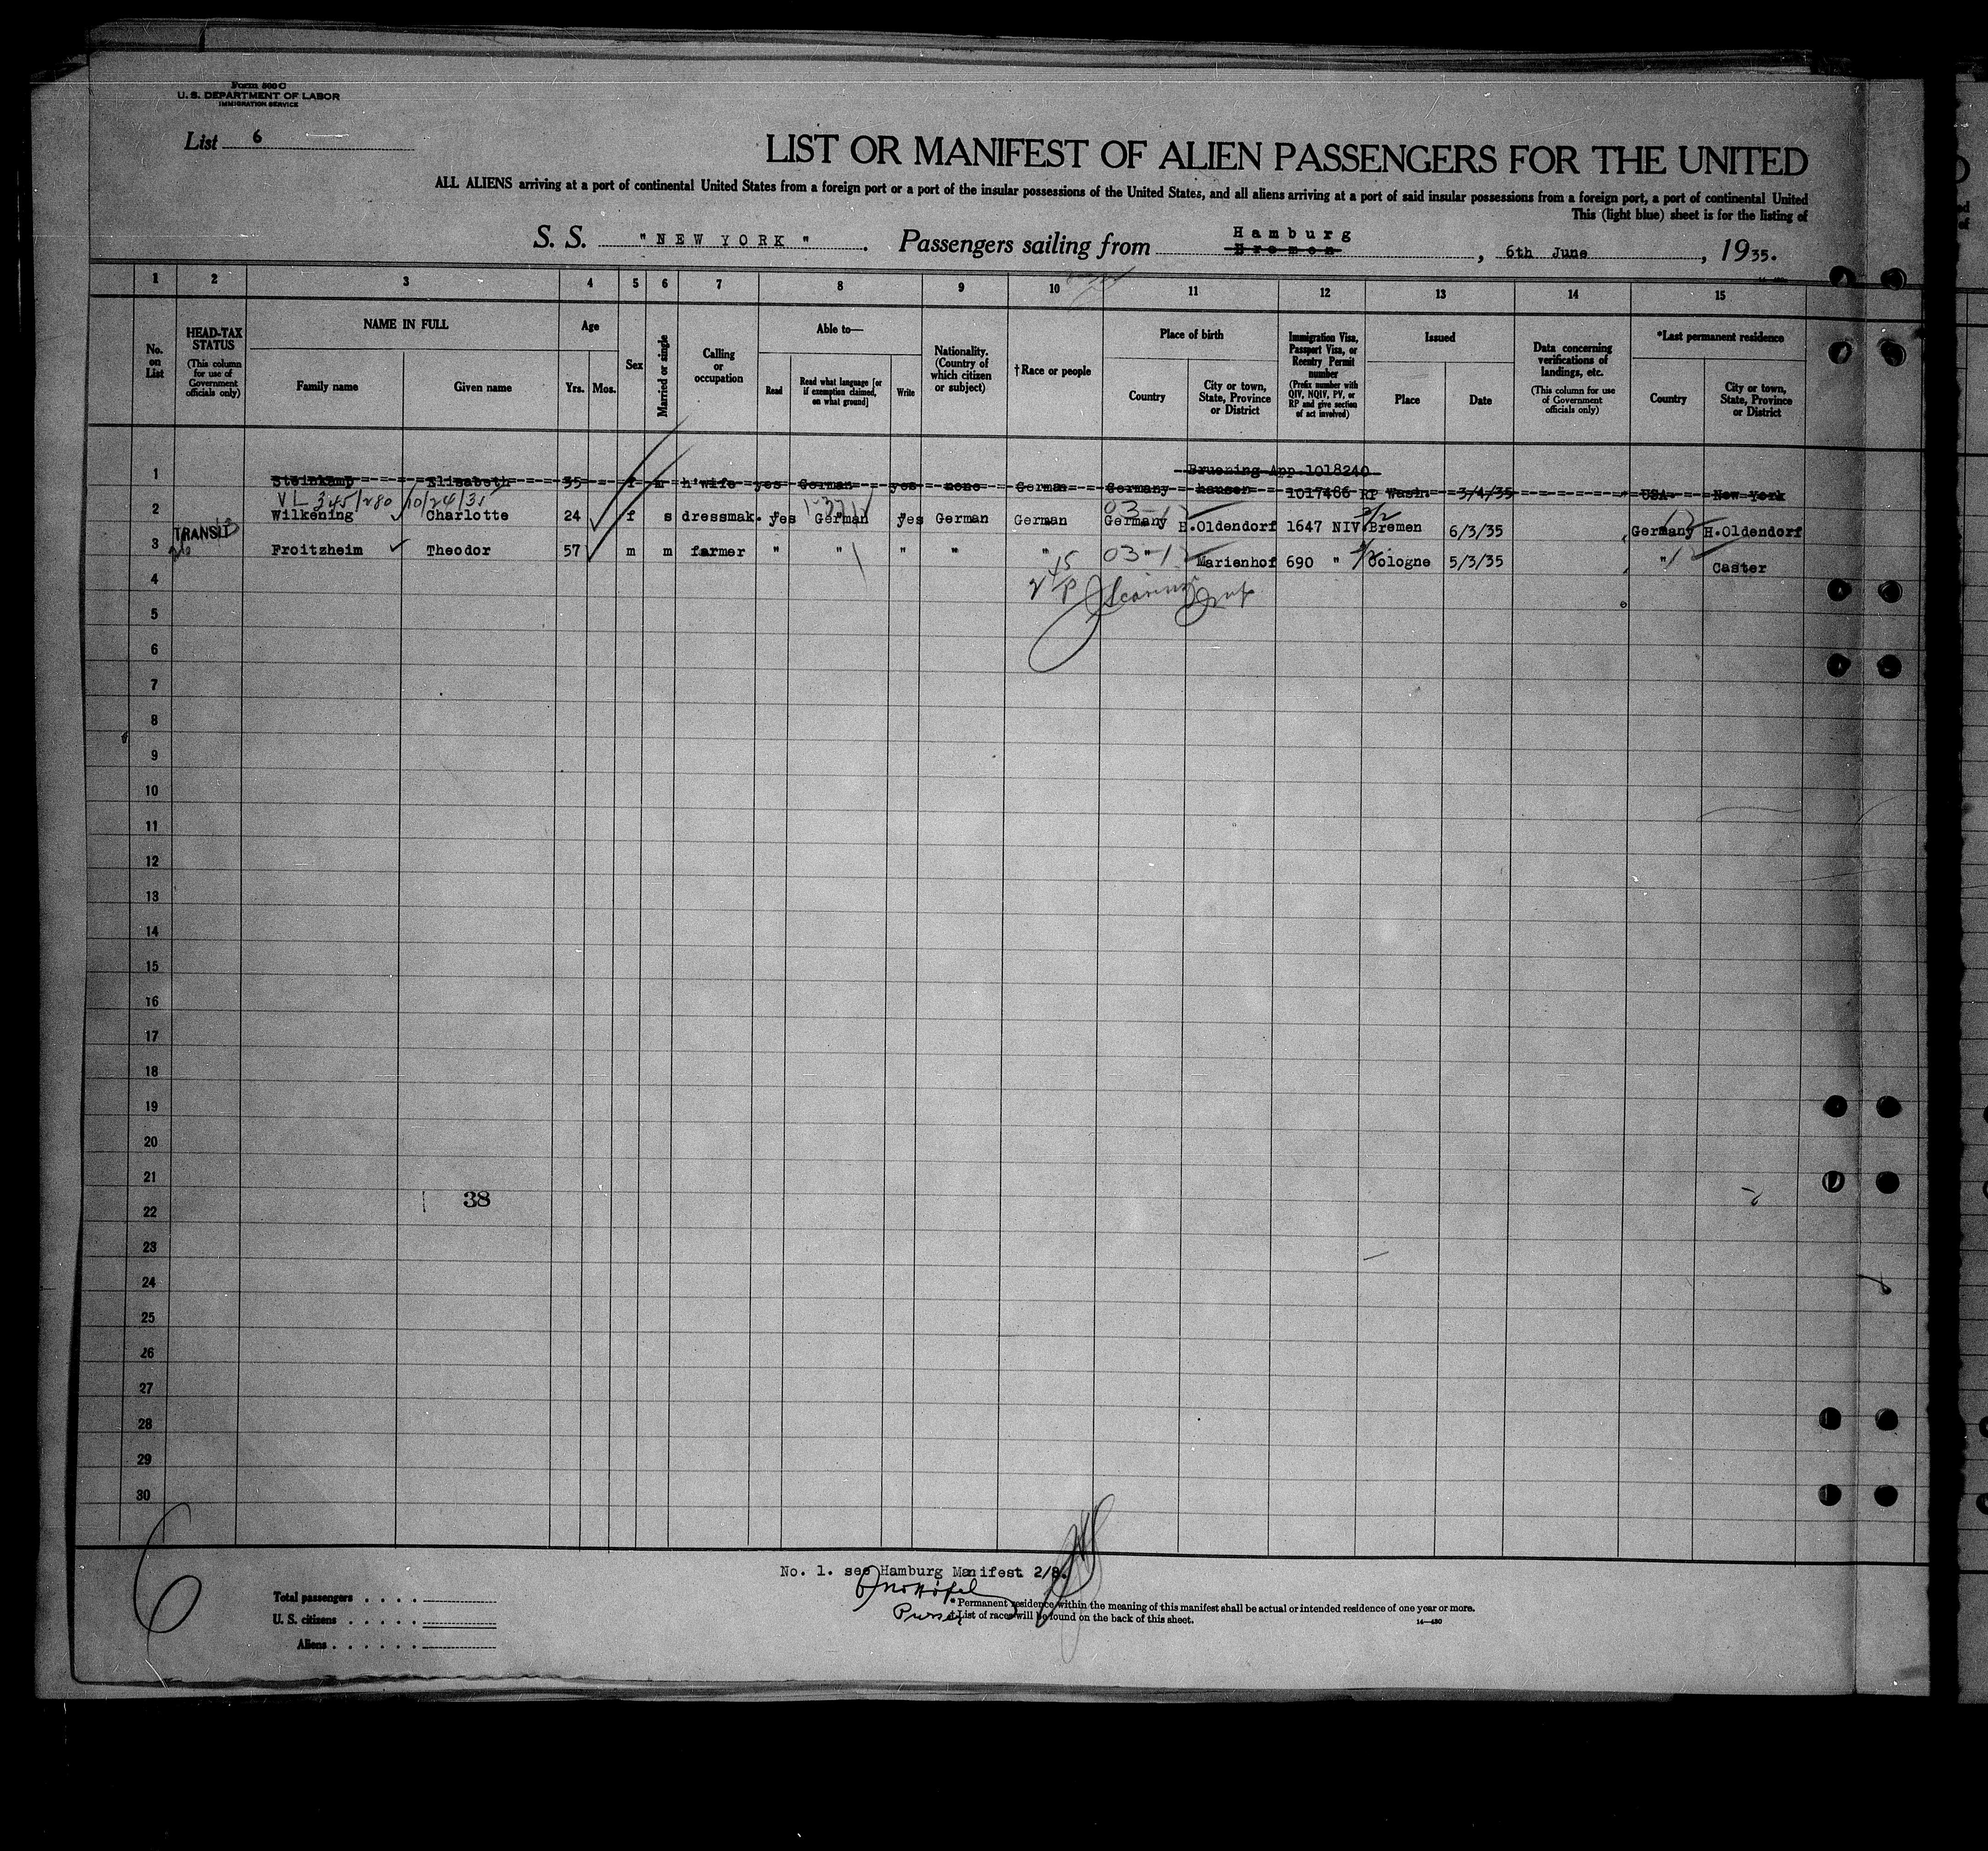 Form 500 C
U. S. DEPARTMENT OF LABOR
IMMIGRATION SERVICE
List 6
LIST OR MANIFEST OF ALIEN PASSENGERS FOR THE UNITED
ALL ALIENS arriving at a port of continental United States from a foreign port or a port of the insular possessions of the United States, and all aliens arriving at a port of said insular possessions from a foreign port, a port of continental United
This (light blue) sheet is for the listing of
S. S. "NEW YORK". Passengers sailing from Hamburg Bremen, 6th June, 1935.
1 2 3 4 5 6 7 8 9 10 11 12 13 14 15
No. on List
HEAD-TAX STATUS (This column for use of Government officials only)
NAME IN FULL
Family name Given name
Age
Yrs. Mos.
Sex
Married or single
Calling or occupation
Able to—
Read Read what language [or if exemption claimed, on what ground] Write
Nationality. (Country of which citizen or subject)
†Race or people
Place of birth
Country City or town, State, Province or District
Immigration Visa, Passport Visa, or Reentry Permit number (Prefix number with QIV, NQIV, PV, or RP and give section of act involved)
Issued
Place Date
Data concerning verifications of landings, etc. (This column for use of Government officials only)
*Last permanent residence
Country City or town, State, Province or District
Bruening App.1018240
1 Steinkamp Elisabeth 35 f m h'wife yes German yes none German Germany hausen 1017466 RP Wash. 3/4/35 USA New York
VL 345/280 10/24/31
2 Wilkening Charlotte 24 f s dressmak. yes German yes German German Germany H.Oldendorf 1647 NIV Bremen 6/3/35 Germany H.Oldendorf
TRANSIT
3 Froitzheim Theodor 57 m m farmer " " " " " " Marienhof 690 " Cologne 5/3/35 " Caster
03-1
4
5
6
7
8
9
10
11
12
13
14
15
16
17
18
19
20
21
38
22
23
24
25
26
27
28
29
30
6
No. 1. see Hamburg Manifest 2/8.
Purser
Total passengers
U. S. citizens
Aliens
* Permanent residence within the meaning of this manifest shall be actual or intended residence of one year or more.
† List of races will be found on the back of this sheet.
14—430